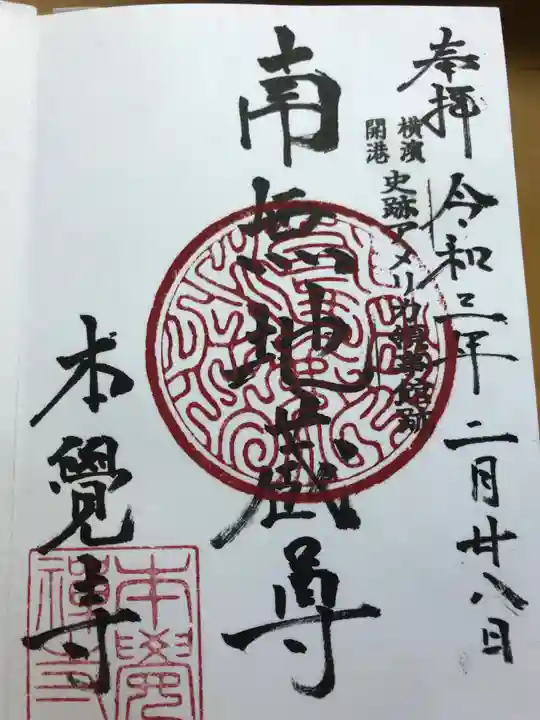 奉拝
令和三年二月廿八日
横濱
開港
史跡アメリカ領事館跡
南無地蔵尊
本覺寺
本覺
禅寺